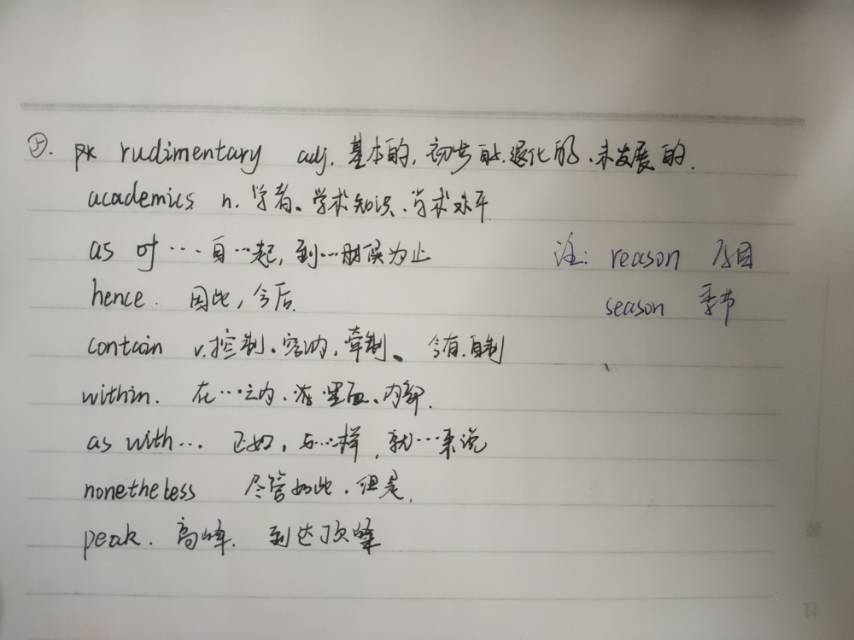 pk rudimentary adj. 基本的, 初步的, 退化的、未发展的.
academics n. 学者、学术知识、学术水平
as of … 自…起, 到…时候为止 注: reason 原因
hence. 因此, 今后. season 季节
contain v. 控制、容纳、牵制、含有、自制
within. 在…之内、在里面、内部.
as with… 正如, 与…一样, 就…来说
nonetheless 尽管如此、但是.
peak. 高峰. 到达顶峰